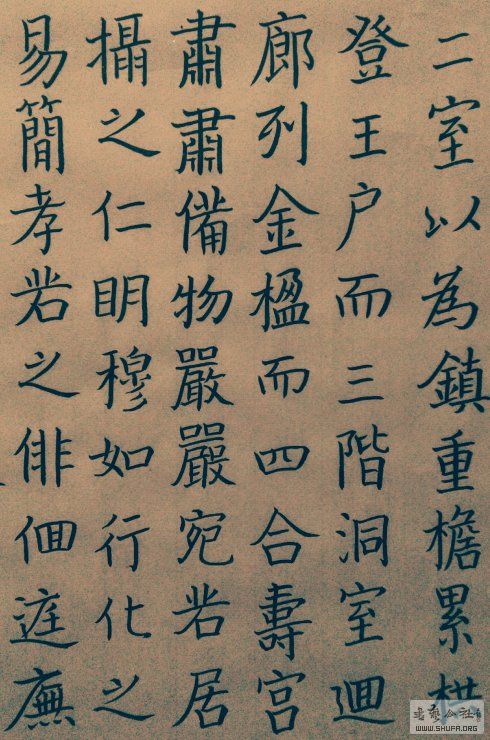 二室以為鎮重檐累栱
登王户而三階洞室迴
廊列金楹而四合壽宮
肅肅備物嚴嚴宛若居
攝之仁明穆如行化之
易簡孝若之俳佪庭廡
WWW.SHUFA.ORG